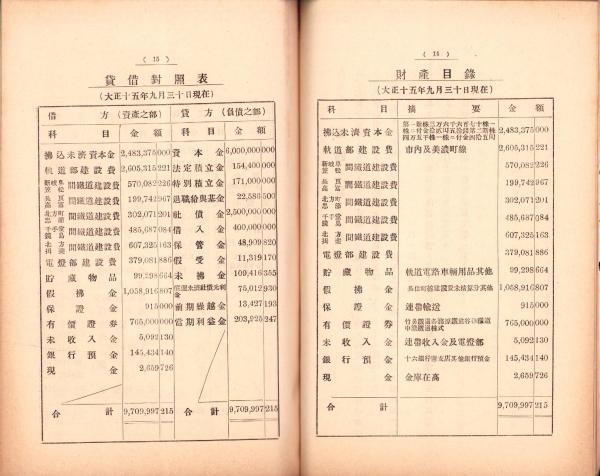 ( 15 )
貸借對照表
（大正十五年九月三十日現在）
借方（資產之部） 貸方（負債之部）
科目 金額 科目 金額
拂込未濟資本金 2,483,375 000 資本金 6,000,000 000
軌道部建設費 2,605,315 221 法定積立金 154,400 000
間鐵道建設費 570,082 226 特別積立金 171,000 000
間鐵道建設費 199,742 967 退職給與基金 22,586 500
間鐵道建設費 302,071 201 社債金 2,500,000 000
間鐵道建設費 485,687 084 借入金 400,000 000
間鐵道建設費 607,325 163 保管金 48,909 820
電燈部建設費 379,081 886 假受金 11,319 170
貯藏物品 99,298 664 未拂金 109,416 355
假拂金 1,058,916 807 75,012 930
保證金 915 000 前期繰越金 13,427 193
有價證券 765,000 000 當期利益金 203,925 247
未收入金 5,092 130
銀行預金 145,434 140
現金 2,659 726
合計 9,709,997 215 合計 9,709,997 215
( 16 )
財產目錄
（大正十五年九月三十日現在）
科目 摘要 金額
拂込未濟資本金 2,483,375 000
軌道部建設費 市內及美濃町線 2,605,315 221
間鐵道建設費 570,082 226
間鐵道建設費 199,742 967
間鐵道建設費 302,071 201
間鐵道建設費 485,687 084
間鐵道建設費 607,325 163
電燈部建設費 379,081 886
貯藏物品 軌道電路車輛用品其他 99,298 664
假拂金 1,058,916 807
保證金 連帶輸送 915 000
有價證券 765,000 000
未收入金 連帶收入金及電燈部 5,092 130
銀行預金 十六銀行御支店其他銀行預金 145,434 140
現金 金庫在高 2,659 726
合計 9,709,997 215